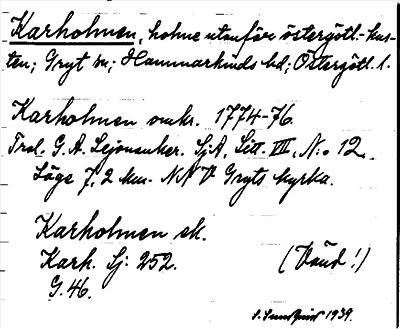 Karholmen, holme utanför östergötl.-kus-
ten; Gryt sn; Hammarkinds hd; Östergötl. l.
Karholmen omkr. 1774-76.
Trol. G. A. Lejonanker. SjA, Litt. VIII, N:o 12.
Läge 7,2 km. NNV Gryts kyrka.
Karholmen ek.
Kark. Sj: 252. (Känd!)
G. 46.
S. Sundquist 1939.